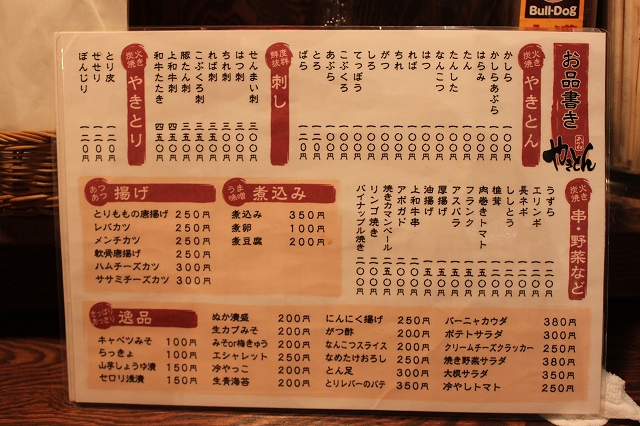 Bull-Dog
お品書き
やきとん
炭火焼き
やきとん
かしら 一〇〇円
かしらあぶら 一〇〇円
はらみ 一〇〇円
たん 一〇〇円
たんした 一〇〇円
なんこつ 一〇〇円
はつ 一〇〇円
れば 一〇〇円
ちれ 一〇〇円
がつ 一〇〇円
しろ 一〇〇円
てっぽう 一〇〇円
こぶくろ 一〇〇円
あぶら 一〇〇円
とろ 一二〇円
ばら 一五〇円
鮮度抜群
刺し
せんまい刺 三〇〇円
はつ刺 三五〇円
ちれ刺 三五〇円
れば刺 三五〇円
こぶくろ刺 三五〇円
豚たん刺 三五〇円
上和牛刺 四五〇円
和牛たたき 四五〇円
炭火焼き
やきとり
とり皮 一二〇円
せせり 一二〇円
ぼんじり 一二〇円
炭火焼き
串・野菜など
うずら 一二〇円
エリンギ 一二〇円
長ネギ 一二〇円
ししとう 一二〇円
椎茸
肉巻きトマト
フランク
アスパラ
厚揚げ
油揚げ
上和牛串
アボガド
焼きカマンベール
リンゴ焼き
パイナップル焼き 二〇〇円
あつあつ
揚げ
とりももの唐揚げ 250円
レバカツ 250円
メンチカツ 250円
軟骨唐揚げ 250円
ハムチーズカツ 300円
ササミチーズカツ 300円
うま味噌
煮込み
煮込み 350円
煮卵 100円
煮豆腐 200円
さっぱりあっさり
逸品
キャベツみそ 100円
らっきょ 100円
山芋しょうゆ漬 150円
セロリ浅漬 150円
ぬか漬盛 200円
生カブみそ 200円
みそor梅きゅう 200円
エシャレット 250円
冷やっこ 200円
生青海苔 200円
にんにく揚げ 250円
がつ酢 200円
なんこつスライス 200円
なめたけおろし 250円
とん足 300円
とりレバーのパテ 350円
バーニャカウダ 380円
ポテトサラダ 300円
クリームチーズクラッカー 250円
焼き野菜サラダ 380円
大根サラダ 350円
冷やしトマト 250円